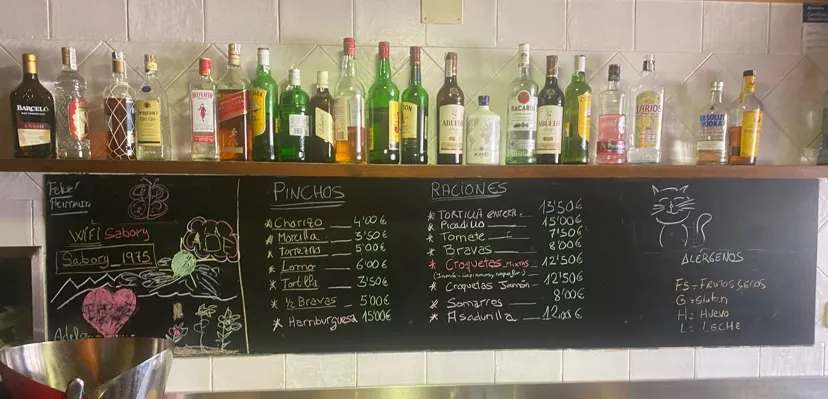 BARCELÓ
AÑEJO
BEEFEATER
ABUELO
BACARDI
ABUELO
LARIOS
ABSOLUT
VODKA
WiFi Sabory
Sabory_1975
Adela
PINCHOS
* Chorizo ___ 4'00€
* Morcilla ___ 3'50€
* Torrezno ___ 5'00€
* Lomo ___ 6'00€
* Tortilla ___ 3'50€
* ½ Bravas ___ 5'00€
* Hamburguesa 15'00€
RACIONES
* TORTILLA ENTERA _ 13'50€
* Picadillo ___ 15'00€
* Tomate ___ 7'50€
* Bravas ___ 8'00€
* Croquetas MIXTAS _ 12'50€
* Croquetas Jamón _ 12'50€
* Somarros ___ 8'00€
* Asadurilla __ 12'00€
ALÉRGENOS
FS = FRUTOS SECOS
G = Gluten
H = Huevo
L = LECHE